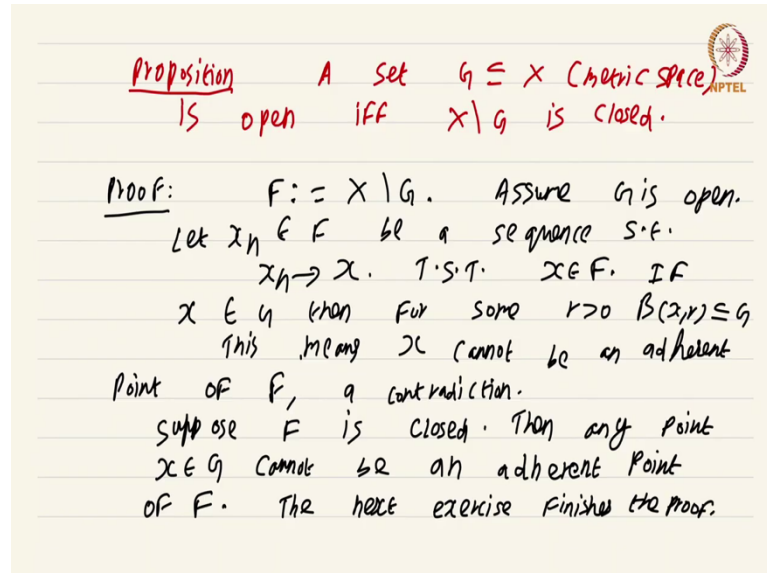 Proposition A set G ⊆ X (metric space)
NPTEL
is open iff X\G is closed.
Proof: F := X\G. Assume G is open.
Let xₙ ∈ F be a sequence s.t.
xₙ → x. T.S.T. x ∈ F. If
x ∈ G then for some r>0 B(x,r) ⊆ G
This means x cannot be an adherent
point of F, a contradiction.
Suppose F is closed. Then any point
x ∈ G cannot be an adherent point
of F. The next exercise finishes the proof.